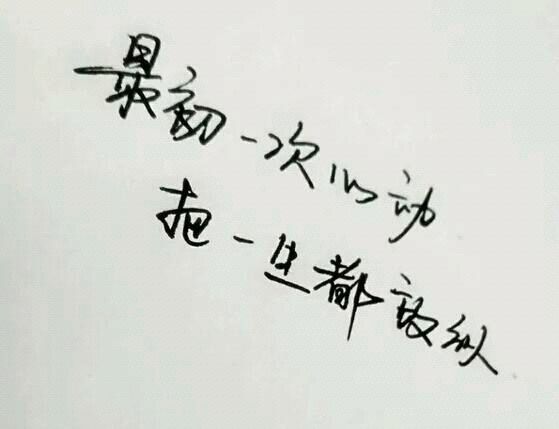 最初一次心动
把一生都放纵